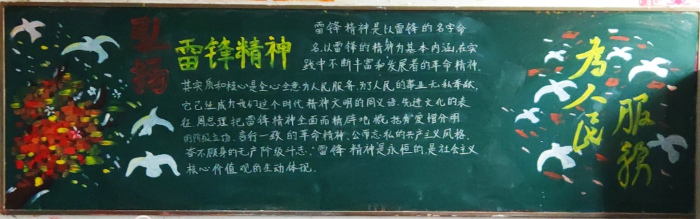 弘扬
雷锋精神
雷锋精神是以雷锋的名字命
名,以雷锋的精神为基本内涵,在实
践中不断丰富和发展着的革命精神,
其实质和核心是全心全意为人民服务,为了人民的事业无私奉献,
它已经成为我们这个时代精神文明的同义语、先进文化的表
征.周总理把雷锋精神全面而精辟地概括为"爱憎分明
的阶级立场、言行一致的革命精神、公而忘私的共产主义风格、
奋不顾身的无产阶级斗志."雷锋精神是永恒的,是社会主义
核心价值观的生动体现.
为人民
服务